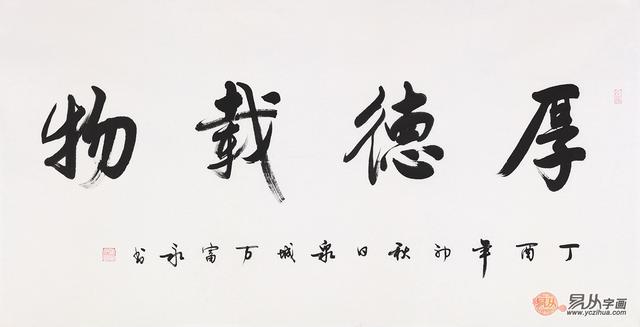 厚德载物
丁酉年初秋日泉城方富永书
易从字画
www.yczihua.com